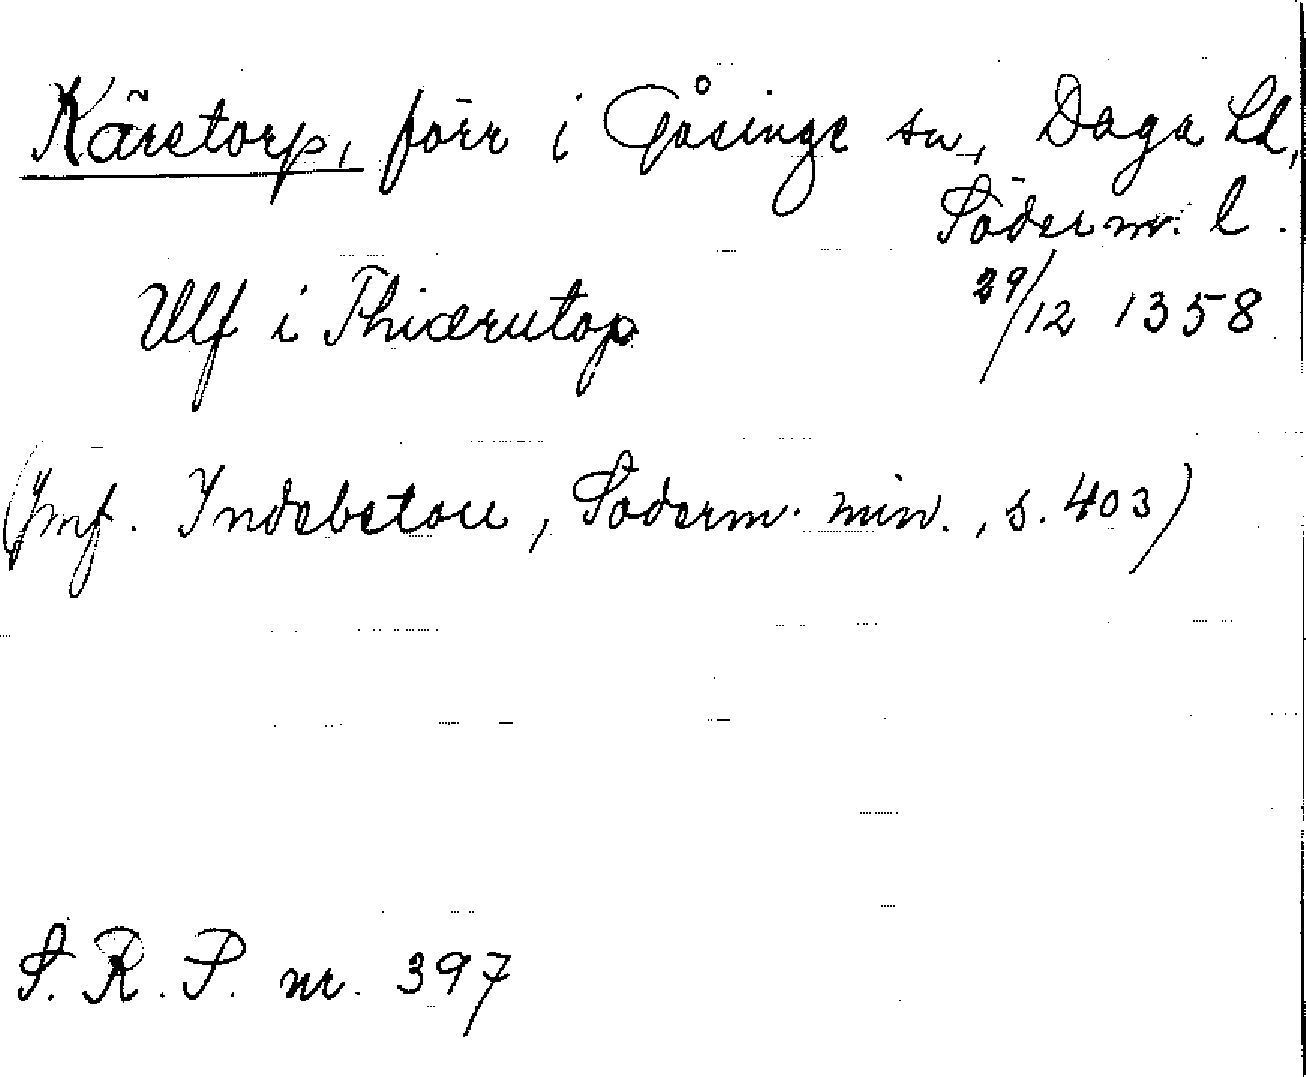 Käretorp, förr i Gåsinge sn, Daga hd,
Söderm. l.
Ulf i Thiærutop 29/12 1358
(Jmf. Indebetou, Söderm. min., s. 403)
S. R. P. nr. 397